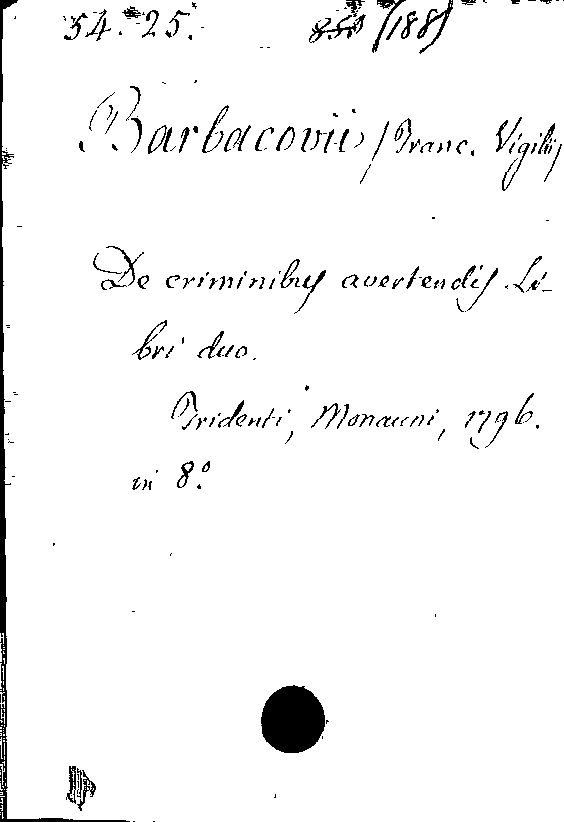 54. 25. (188)
Barbacovii (Franc. Vigilii)
De criminibus avertendis Li-
bri duo.
Tridenti, Monauni, 1796.
in 8.º